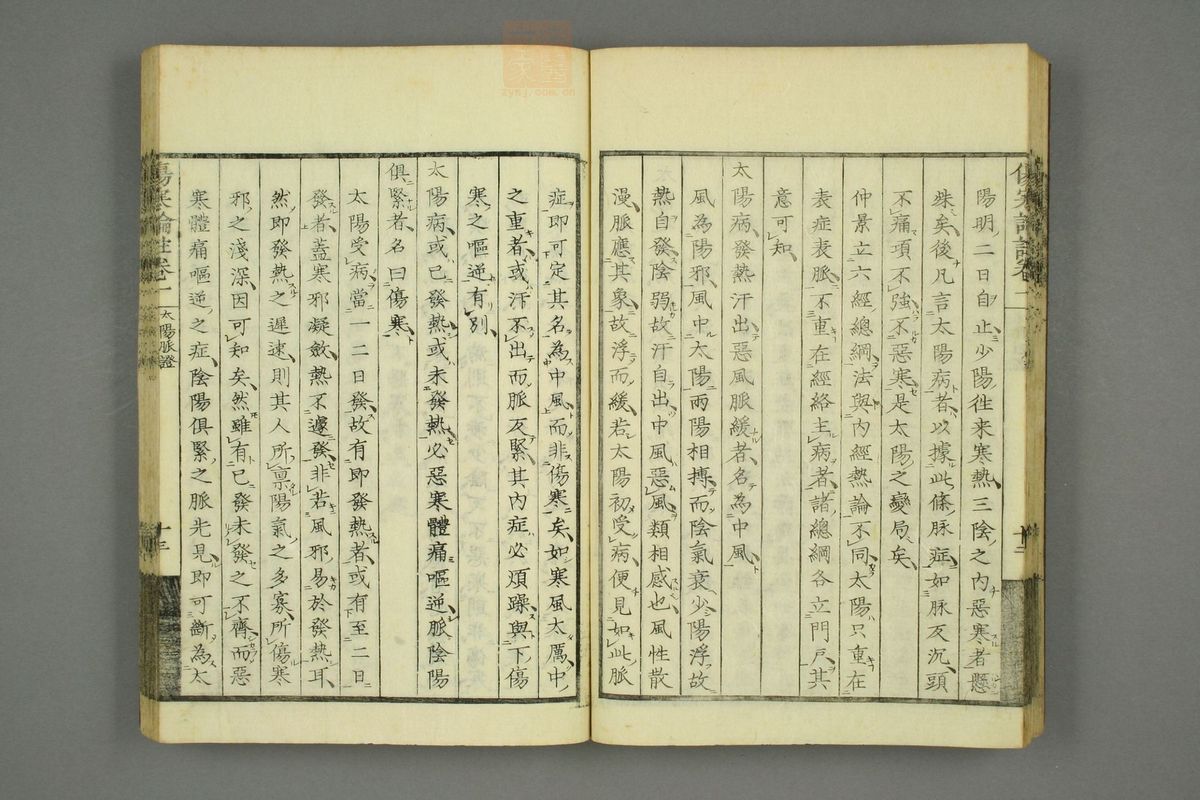 陽明二日自止少陽徃来寒熱三陰之内惡寒者懸
殊矣後凡言太陽病者以據此條脉症如脉反沉頭
不痛項不強不惡寒是太陽之變局矣
仲景立六經總綱法與内經熱論不同太陽只重在
表症表脈不重在經絡主病看諸總綱各立門戶其
意可知
太陽病發熱汗出惡風脈緩者名為中風
風為陽邪風中太陽兩陽相搏而陰氣衰少陽浮故
熱自發陰弱故汗自出中風惡風類相感也風性散
漫脈應其象故浮而緩若太陽初受病便見如此脈
症即可定其名為中風而非傷寒矣如寒風太厲中
之重者或汗不出而脈反緊其内症必煩躁與下傷
寒之嘔逆有別
太陽病或已發熱或未發熱必惡寒體痛嘔逆脈陰陽
俱緊者名曰傷寒
太陽受病當一二日發故有即發熱者或有至二日
發者蓋寒邪凝斂熱不遽發非若風邪易於發熱耳
然即發熱之遲速則其人所禀陽氣之多寡所傷寒
邪之淺深因可知矣然雖有已發未發之不齊而惡
寒體痛嘔逆之症陰陽俱緊之脈先見即可斷為太
傷寒論註卷一
太陽脈證
十三
zysj.com.cn